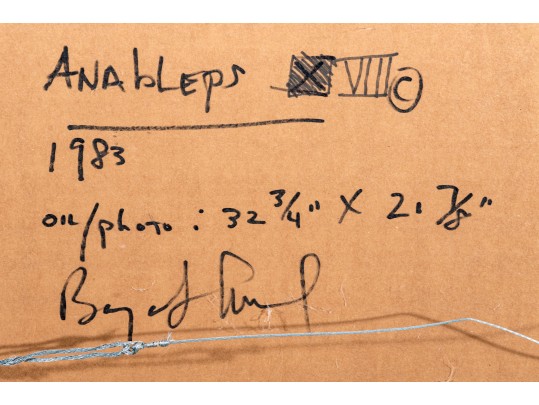 ANAbLEps X VIII ©
1983
OIL/photo: 32 3/4" X 21 7/8"